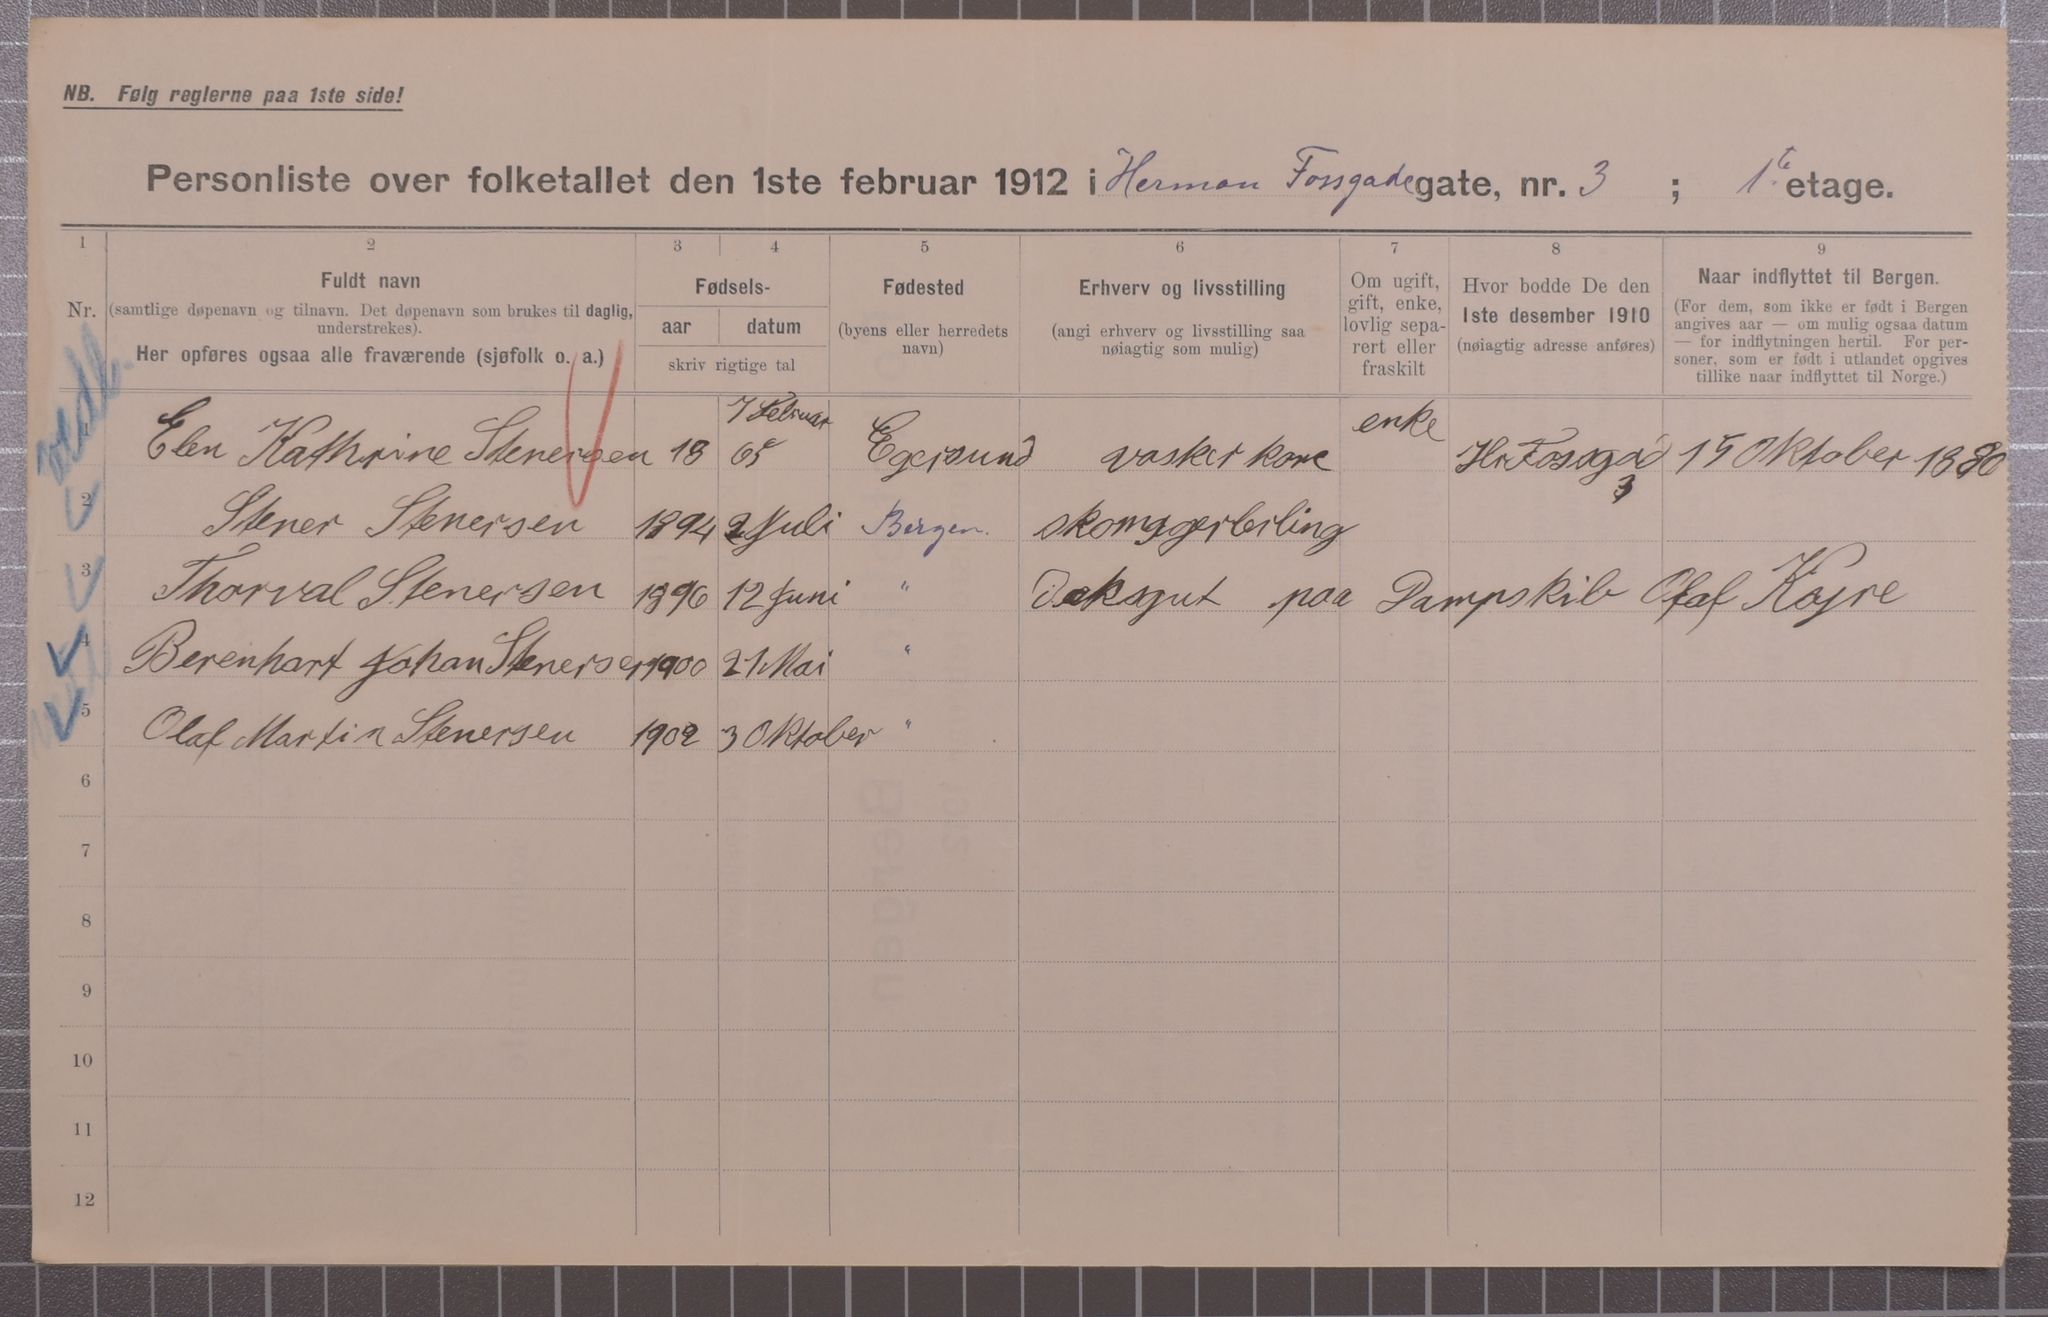 NB. Følg reglerne paa 1ste side!
Personliste over folketallet den 1ste februar 1912 i Herman Fossgade gate, nr. 3 ; 1.te etage.
1 2 3 4 5 6 7 8 9
Nr.
Fuldt navn
(samtlige døpenavn og tilnavn. Det døpenavn som brukes til daglig,
understrekes).
Her opføres ogsaa alle fraværende (sjøfolk o. a.)
Fødsels-
aar datum
skriv rigtige tal
Fødested
(byens eller herredets
navn)
Erhverv og livsstilling
(angi erhverv og livsstilling saa
nøiagtig som mulig)
Om ugift,
gift, enke,
lovlig sepa-
rert eller
fraskilt
Hvor bodde De den
1ste desember 1910
(nøiagtig adresse anføres)
Naar indflyttet til Bergen.
(For dem, som ikke er født i Bergen
angives aar — om mulig ogsaa datum
— for indflytningen hertil. For per-
soner, som er født i utlandet opgives
tillike naar indflyttet til Norge.)
1 Elen Kathrine Stenersen 18 65 7 Februar Egersund vasker kone enke Hr Fossgad 3 15 Oktober 1880
2 Stener Stenersen 1894 2 Juli Bergen. skomagerlerling
3 Thorval Stenersen 1896 12 Juni " Deksgut paa Dampskib Olaf Kyrre
4 Berenhart Johan Stenersen 1900 21 Mai "
5 Olaf Martin Stenersen 1902 3 Oktober "
6
7
8
9
10
11
12